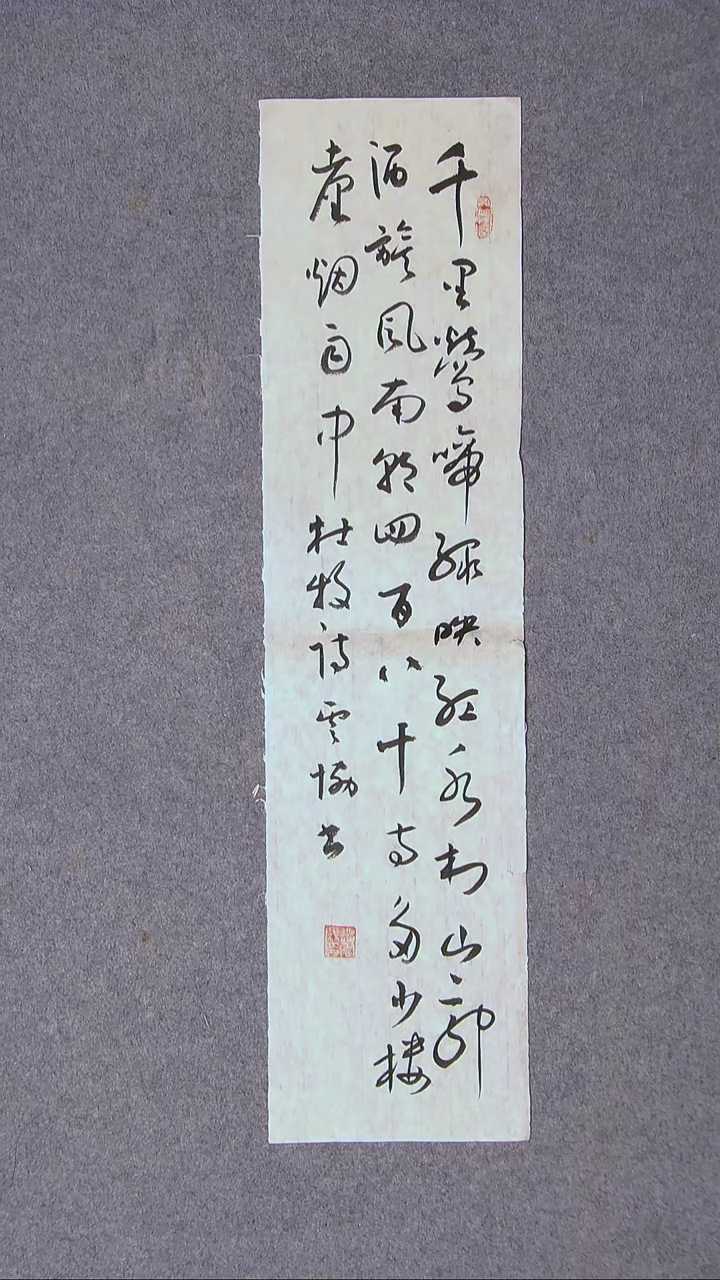 千里鶯啼绿映红水村山郭
酒旗风南朝四百八十寺多少楼
臺烟雨中杜牧诗雲恊书